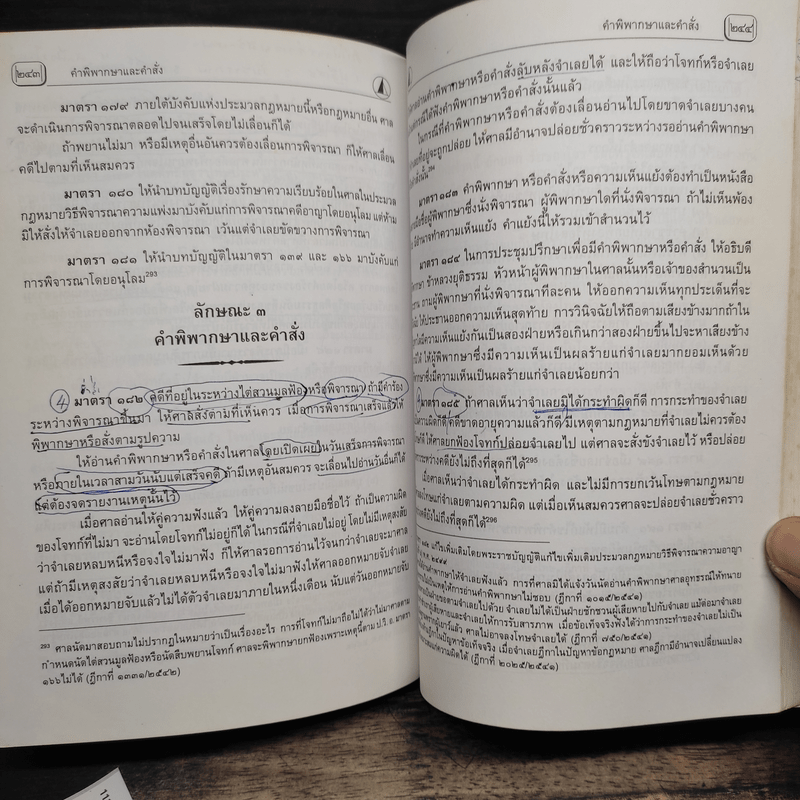 ๒๔๓ คำพิพากษาและคำสั่ง
มาตรา ๑๗๙ ภายใต้บังคับแห่งประมวลกฎหมายนี้หรือกฎหมายอื่น ศาล
จะดำเนินการพิจารณาตลอดไปจนเสร็จโดยไม่เลื่อนก็ได้
ถ้าพยานไม่มา หรือมีเหตุอื่นอันควรต้องเลื่อนการพิจารณา ก็ให้ศาลเลื่อน
คดีไปตามที่เห็นสมควร
มาตรา ๑๘๐ ให้นำบทบัญญัติเรื่องรักษาความเรียบร้อยในศาลในประมวล
กฎหมายวิธีพิจารณาความแพ่งมาบังคับแก่การพิจารณาคดีอาญาโดยอนุโลม แต่ห้าม
มิให้สั่งให้จำเลยออกจากห้องพิจารณา เว้นแต่จำเลยขัดขวางการพิจารณา
มาตรา ๑๘๑ ให้นำบทบัญญัติในมาตรา ๑๓๙ และ ๑๖๖ มาบังคับแก่
การพิจารณาโดยอนุโลม293
ลักษณะ ๓
คำพิพากษาและคำสั่ง
4 มาตรา ๑๘๒ คดีที่อยู่ในระหว่างไต่สวนมูลฟ้องหรือพิจารณา ถ้ามีคำร้อง
ระหว่างพิจารณาขึ้นมา ให้ศาลสั่งตามที่เห็นควร เมื่อการพิจารณาเสร็จแล้วให้
พิพากษาหรือสั่งตามรูปความ
ให้อ่านคำพิพากษาหรือคำสั่งในศาลโดยเปิดเผยในวันเสร็จการพิจารณา
หรือภายในเวลาสามวันนับแต่เสร็จคดี ถ้ามีเหตุอันสมควร จะเลื่อนไปอ่านวันอื่นก็ได้
แต่ต้องจดรายงานเหตุนั้นไว้
เมื่อศาลอ่านให้คู่ความฟังแล้ว ให้คู่ความลงลายมือชื่อไว้ ถ้าเป็นความผิด
ของโจทก์ที่ไม่มา จะอ่านโดยโจทก์ไม่อยู่ก็ได้ ในกรณีที่จำเลยไม่อยู่ โดยไม่มีเหตุสงสัย
ว่าจำเลยหลบหนีหรือจงใจไม่มาฟัง ก็ให้ศาลรอการอ่านไว้จนกว่าจำเลยจะมาศาล
แต่ถ้ามีเหตุสงสัยว่าจำเลยหลบหนีหรือจงใจไม่มาฟังให้ศาลออกหมายจับจำเลย
เมื่อได้ออกหมายจับแล้วไม่ได้ตัวจำเลยมาภายในหนึ่งเดือน นับแต่วันออกหมายจับ
293 ศาลนัดมาสอบถามไม่ปรากฏในหมายว่าเป็นเรื่องอะไร การที่โจทก์ไม่มาถือไม่ได้ว่าไม่มาศาลตาม
กำหนดนัดไต่สวนมูลฟ้องหรือนัดสืบพยานโจทก์ ศาลจะพิพากษายกฟ้องเพราะเหตุนี้ตาม ป.วิ.อ. มาตรา
๑๖๖ไม่ได้ (ฎีกาที่ ๑๓๓๑/๒๕๔๒)
คำพิพากษาและคำสั่ง ๒๔๔
อ่านคำพิพากษาหรือคำสั่งลับหลังจำเลยได้ และให้ถือว่าโจทก์หรือจำเลย
ได้ฟังคำพิพากษาหรือคำสั่งนั้นแล้ว
ในกรณีที่คำพิพากษาหรือคำสั่งต้องเลื่อนอ่านไปโดยขาดจำเลยบางคน
ที่อยู่จะถูกปล่อย ให้ศาลมีอำนาจปล่อยชั่วคราวระหว่างรออ่านคำพิพากษา
คำสั่งนั้น294
มาตรา ๑๘๓ คำพิพากษา หรือคำสั่งหรือความเห็นแย้งต้องทำเป็นหนังสือ
ลงลายมือชื่อผู้พิพากษาซึ่งนั่งพิจารณา ผู้พิพากษาใดที่นั่งพิจารณา ถ้าไม่เห็นพ้อง
มีอำนาจทำความเห็นแย้ง คำแย้งนี้ให้รวมเข้าสำนวนไว้
มาตรา ๑๘๔ ในการประชุมปรึกษาเพื่อมีคำพิพากษาหรือคำสั่ง ให้อธิบดี
ข้าหลวงยุติธรรม หัวหน้าผู้พิพากษาในศาลนั้นหรือเจ้าของสำนวนเป็น
ถามผู้พิพากษาที่นั่งพิจารณาทีละคน ให้ออกความเห็นทุกประเด็นที่จะ
ให้ประธานออกความเห็นสุดท้าย การวินิจฉัยให้ถือตามเสียงข้างมากถ้าใน
มีความเห็นแย้งกันเป็นสองฝ่ายหรือเกินกว่าสองฝ่ายขึ้นไปจะหาเสียงข้าง
ได้ ให้ผู้พิพากษาซึ่งมีความเห็นเป็นผลร้ายแก่จำเลยมากยอมเห็นด้วย
ผู้พิพากษาซึ่งมีความเห็นเป็นผลร้ายแก่จำเลยน้อยกว่า
มาตรา ๑๘๕ ถ้าศาลเห็นว่าจำเลยมิได้กระทำผิดก็ดี การกระทำของจำเลย
ความผิดก็ดี คดีขาดอายุความแล้วก็ดี มีเหตุตามกฎหมายที่จำเลยไม่ควรต้อง
ให้ศาลยกฟ้องโจทก์ปล่อยจำเลยไป แต่ศาลจะสั่งขังจำเลยไว้ หรือปล่อย
ระหว่างคดียังไม่ถึงที่สุดก็ได้295
เมื่อศาลเห็นว่าจำเลยได้กระทำผิด และไม่มีการยกเว้นโทษตามกฎหมาย
ลงโทษแก่จำเลยตามความผิด แต่เมื่อเห็นสมควรศาลจะปล่อยจำเลยชั่วคราว
คดียังไม่ถึงที่สุดก็ได้296
๑๘๒ แก้ไขเพิ่มเติมโดยพระราชบัญญัติแก้ไขเพิ่มเติมประมวลกฎหมายวิธีพิจารณาความอาญา
๒๔๙๙
คำพิพากษาให้จำเลยฟังแล้ว การที่ศาลมิได้แจ้งวันนัดอ่านคำพิพากษาศาลอุทธรณ์ให้ทนาย
ไม่เป็นเหตุให้การอ่านคำพิพากษาไม่ชอบ (ฎีกาที่ ๑๐๑๕/๒๕๔๑)
(ฎีกาที่ ๗๕๐/๒๕๔๑)
(ฎีกาที่ ๒๐๒๕/๒๕๔๑)